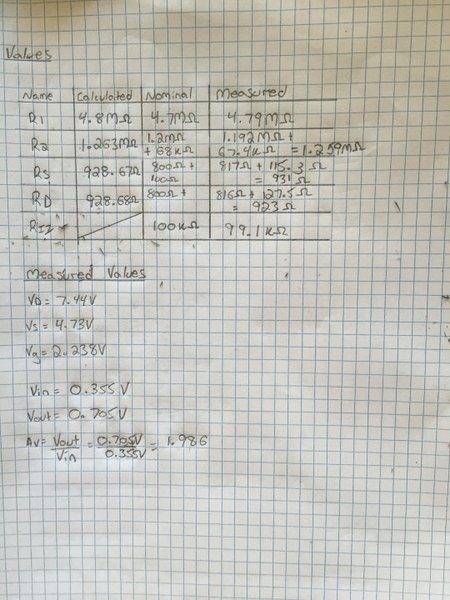 Values
Name Calculated Nominal Measured
R1 4.8MΩ 4.7MΩ 4.79MΩ
R2 1.263MΩ 1.2mΩ + 68kΩ 1.192MΩ + 67.4kΩ = 1.259MΩ
RS 928.67Ω 800Ω + 100Ω 817Ω + 115.3Ω = 931Ω
RD 928.68Ω 800Ω + 816Ω + 127.5Ω = 923Ω
100kΩ 99.1kΩ
Measured Values
VD = 7.44V
Vs = 4.73V
Vg = 2.238V
Vin = 0.355V
Vout = 0.705V
Av = Vout/Vin = 0.705V/0.355V = 1.986